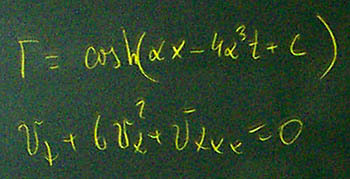 Γ = cosh(αx − 4α³t + c)
v_t + 6v_x² + v_xxx = 0